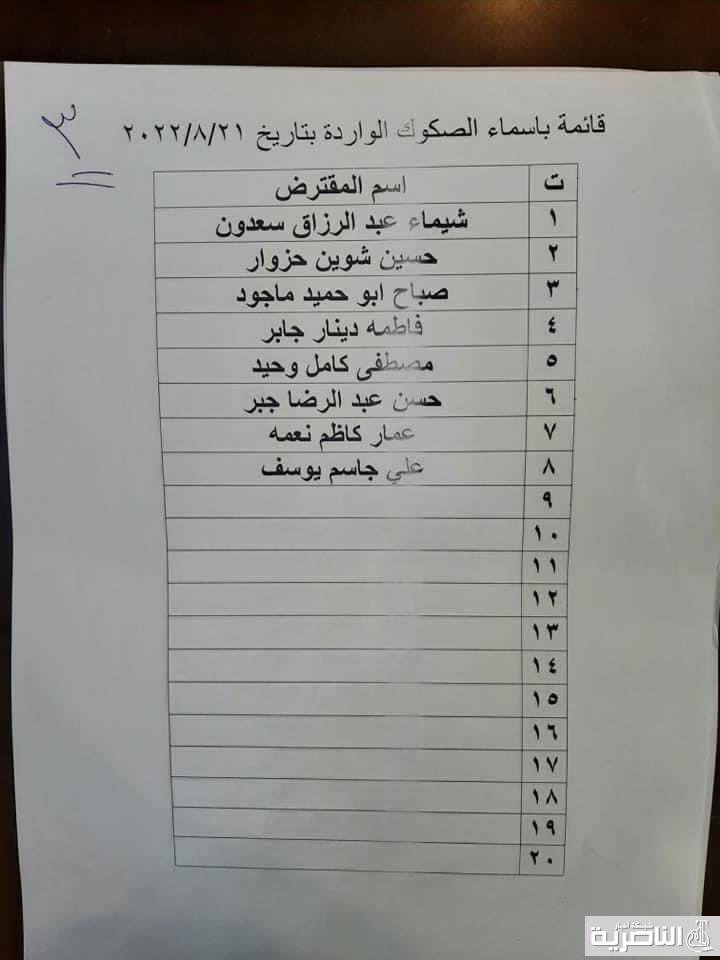 ٣
قائمة باسماء الصكوك الواردة بتاريخ ٢٠٢٢/٨/٢١
ت اسم المقترض
١ شيماء عبد الرزاق سعدون
٢ حسين شوين حزوار
٣ صباح ابو حميد ماجود
٤ فاطمه دينار جابر
٥ مصطفى كامل وحيد
٦ حسن عبد الرضا جبر
٧ عمار كاظم نعمه
٨ علي جاسم يوسف
٩
١٠
١١
١٢
١٣
١٤
١٥
١٦
١٧
١٨
١٩
٢٠
شبكة اخبار
الناصرية